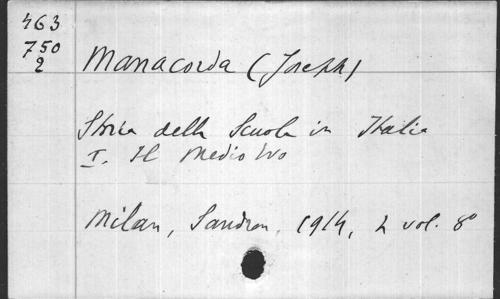 463
750
2
Manacorda (Joseph)
Storia della Scuola in Italia
I. Il Medio Evo
Milan, Sandron, 1914, 2 vol. 8°